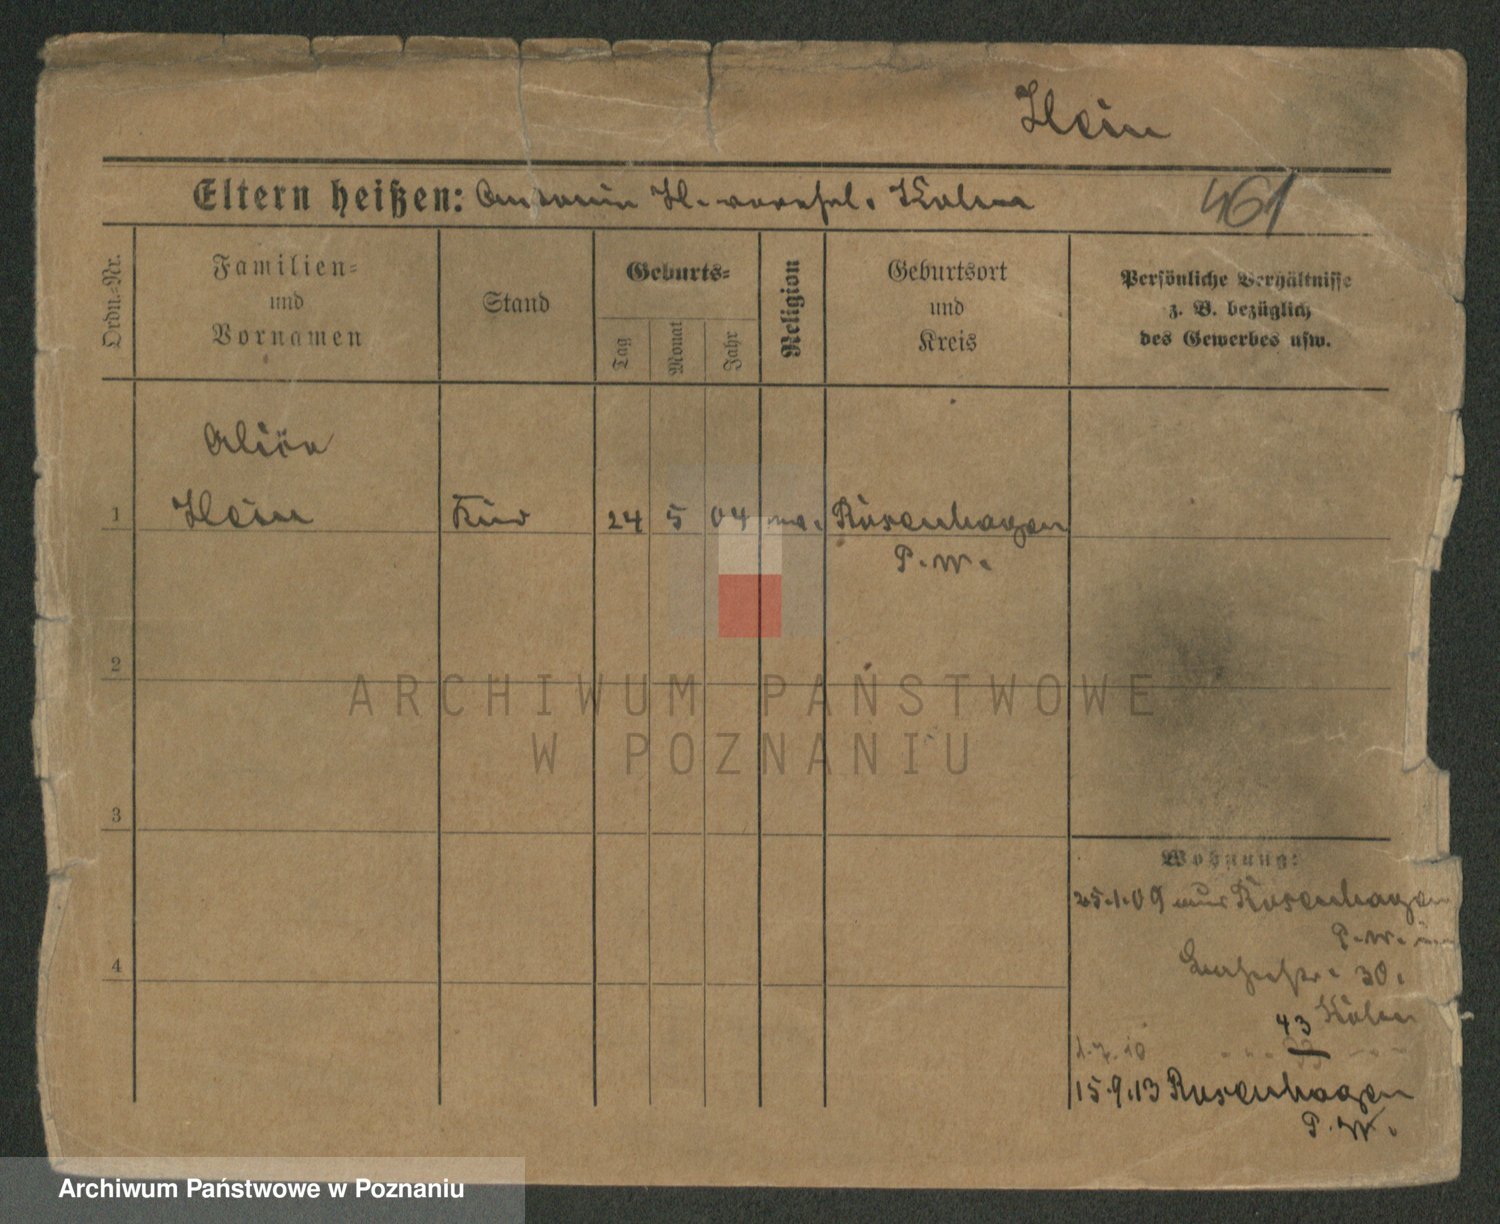 Hein
Eltern heißen: Antonin H. verehel. Kolm
461
Ordn.-Nr.
Familien-
und
Vornamen
Stand
Geburts-
Tag
Monat
Jahr
Religion
Geburtsort
und
Kreis
Persönliche Verhältnisse
z. B. bezüglich
des Gewerbes usw.
1
Hein
Kind
24
5
04
Rosenhagen
P. W.
2
3
4
Wohnung:
25.1.09 aus Rosenhagen
P. W.
30.
43
1.7.10
15.9.13 Rosenhagen
P. W.
ARCHIWUM PAŃSTWOWE
W POZNANIU
Archiwum Państwowe w Poznaniu